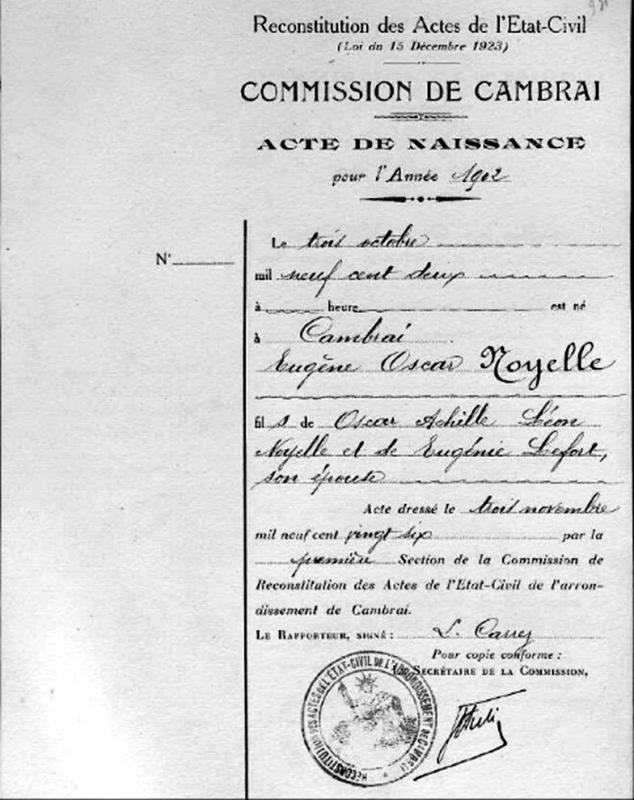 Reconstitution des Actes de l'Etat-Civil
(Loi du 15 Décembre 1923)
COMMISSION DE CAMBRAI
ACTE DE NAISSANCE
pour l'Année 1902
N°
Le trois octobre
mil neuf cent deux
à heure est né
à Cambrai
Eugène Oscar Noyelle
fils de Oscar Achille Léon
Noyelle et de Eugénie Lefort,
son épouse
Acte dressé le trois novembre
mil neuf cent vingt six par la
première Section de la Commission de
Reconstitution des Actes de l'Etat-Civil de l'arron-
dissement de Cambrai.
LE RAPPORTEUR, SIGNÉ : L. Carrez
Pour copie conforme :
SECRÉTAIRE DE LA COMMISSION,
RECONSTITUTION DES ACTES DE L'ETAT-CIVIL DE L'ARRONDISSEMENT DE CAMBRAI